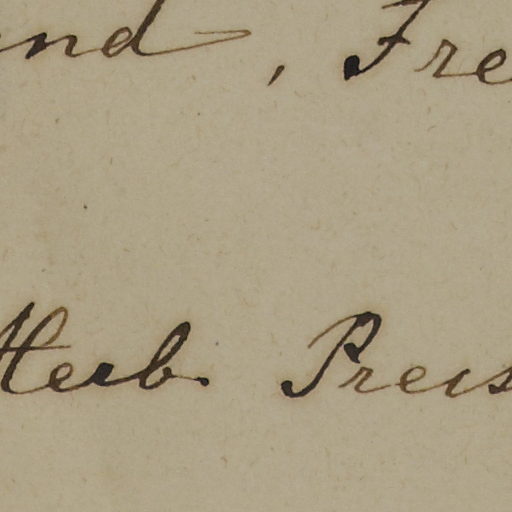 nd, Fre
Herb. Preis